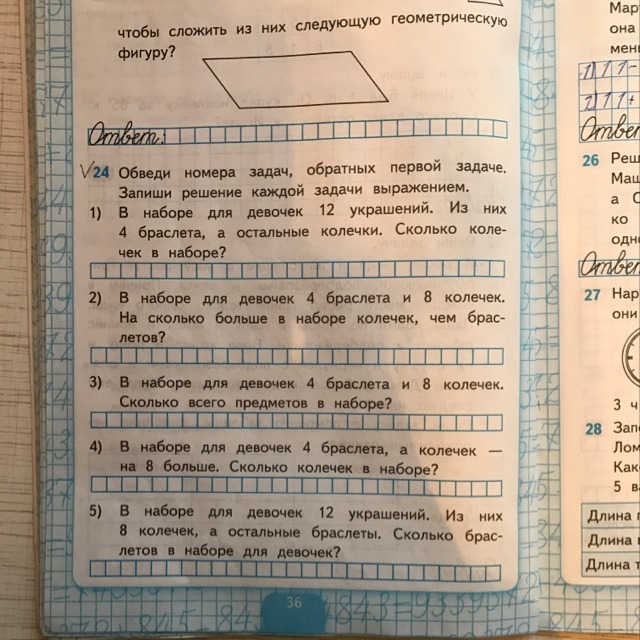 чтобы сложить из них следующую геометрическую
фигуру?
Ответ:
√24 Обведи номера задач, обратных первой задаче.
Запиши решение каждой задачи выражением.
1) В наборе для девочек 12 украшений. Из них
4 браслета, а остальные колечки. Сколько коле-
чек в наборе?
2) В наборе для девочек 4 браслета и 8 колечек.
На сколько больше в наборе колечек, чем брас-
летов?
3) В наборе для девочек 4 браслета и 8 колечек.
Сколько всего предметов в наборе?
4) В наборе для девочек 4 браслета, а колечек —
на 8 больше. Сколько колечек в наборе?
5) В наборе для девочек 12 украшений. Из них
8 колечек, а остальные браслеты. Сколько брас-
летов в наборе для девочек?
36
Мар
она
мень
Ответ
26 Реш
Маш
а С
ко
одн
Ответ
27 Нар
они
3 ч
28 Запо
Лом
Как
5 ва
Длина
Длина
Длина т